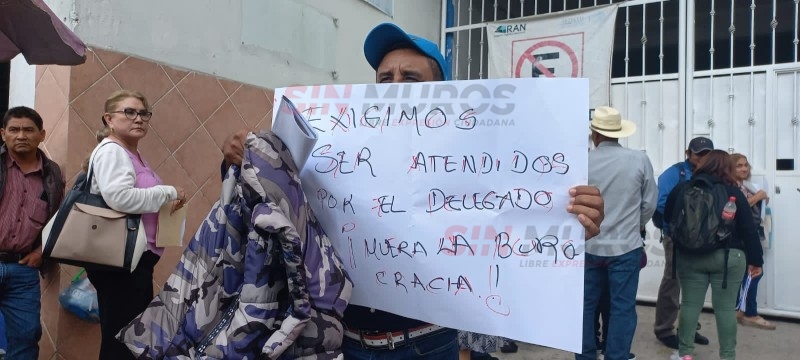 RAN
SIN MUROS
LIBRE EXPRESIÓN CIUDADANA
EXIGIMOS
SER ATENDIDOS
POR EL DELEGADO
¡MUERA LA BURO
CRACIA!
SIN MUROS
LIBRE EXPRESIÓN CIUDADANA